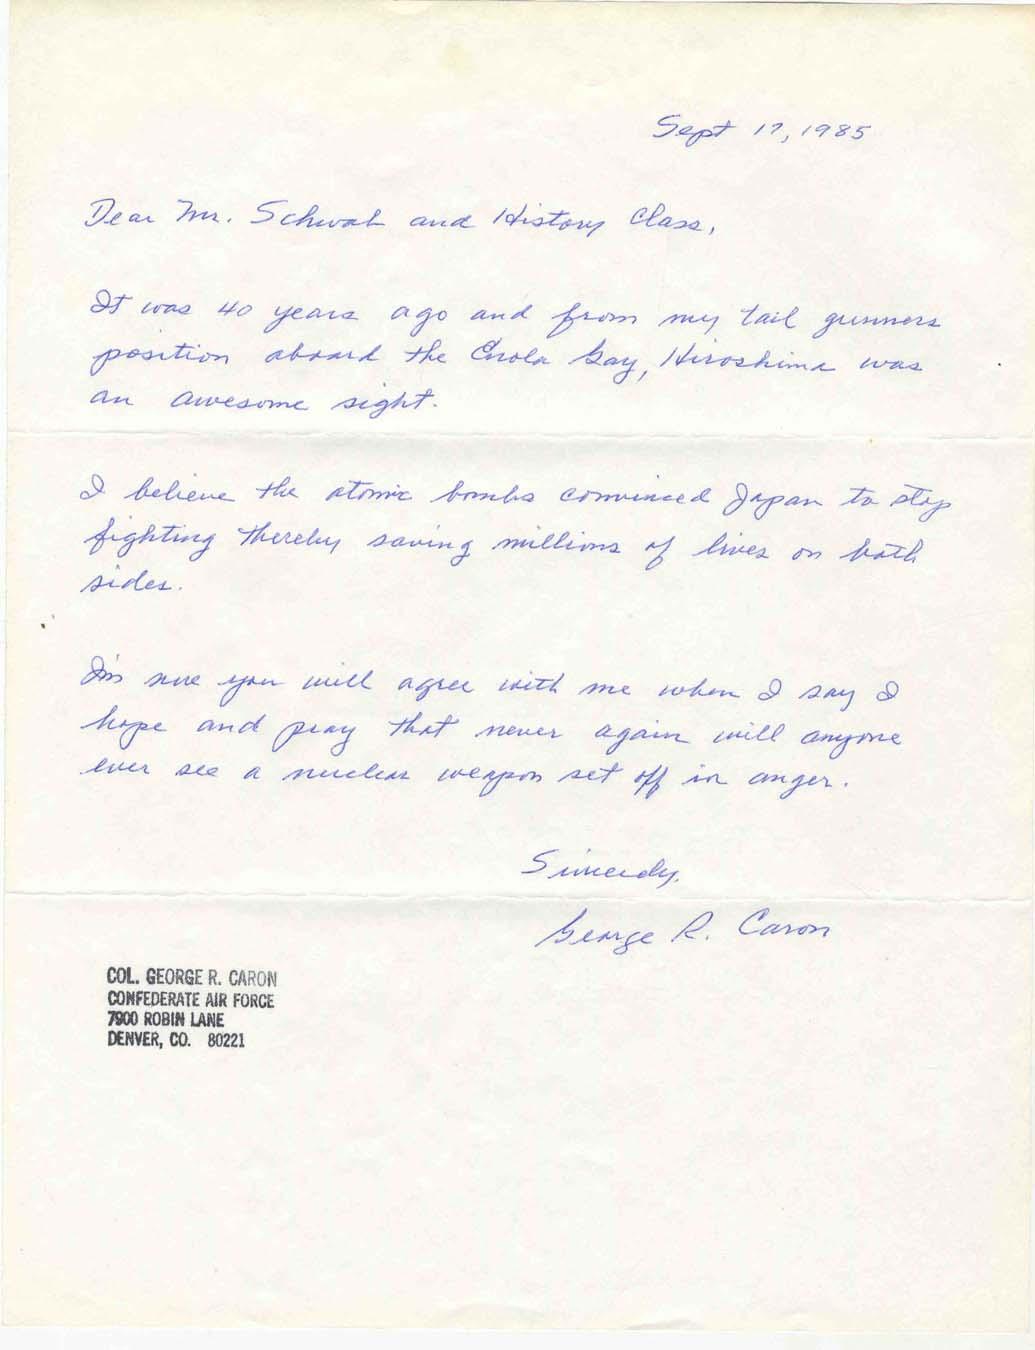 Sept 17, 1985
Dear Mr. Schwab and History Class,
It was 40 years ago and from my tail gunners
position aboard the Enola Gay, Hiroshima was
an awesome sight.
I believe the atomic bombs convinced Japan to stop
fighting thereby saving millions of lives on both
sides.
I'm sure you will agree with me when I say I
hope and pray that never again will anyone
ever see a nuclear weapon set off in anger.
Sincerely,
George R. Caron
COL. GEORGE R. CARON
CONFEDERATE AIR FORCE
7900 ROBIN LANE
DENVER, CO. 80221